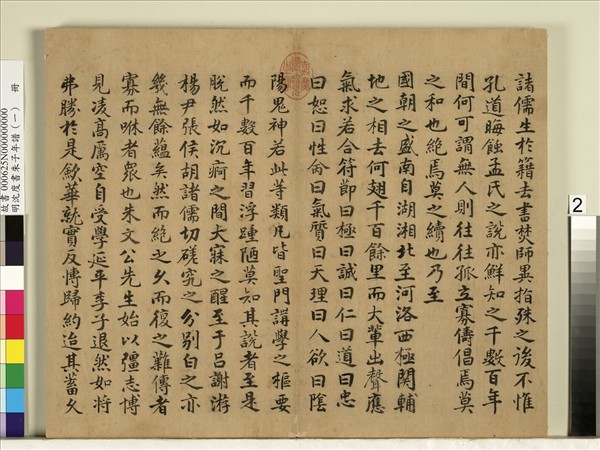 諸儒生於籍去書焚師異指殊之後不惟
孔道晦蝕孟氏之説亦鮮知之千數百年
間何可謂無人則往往孤立寡儔倡焉莫
之和也絶焉莫之續也乃至
國朝之盛南自湖湘北至河洛西極関輔
地之相去何翅千百餘里而大軰出聲應
氣求若合符節曰極曰誠曰仁曰道曰忠
曰恕曰性命曰氣質曰天理曰人欲曰陰
陽鬼神若此等類凡皆聖門講學之樞要
而千數百年習浮踵陋莫知其說者至是
脱然如沉痾之間大寐之醒至于吕謝游
楊尹張侯胡諸儒切磋究之分别白之亦
幾無餘藴矣然而絶之久而復之難傳者
寡而咻者衆也朱文公先生始以彊志博
見凌髙厲空自受學延平李子退然如將
弗勝於是歛華就實反博歸約迨其蓄久
冊
故書000625N000000000
明沈度書朱子年譜（一）
2